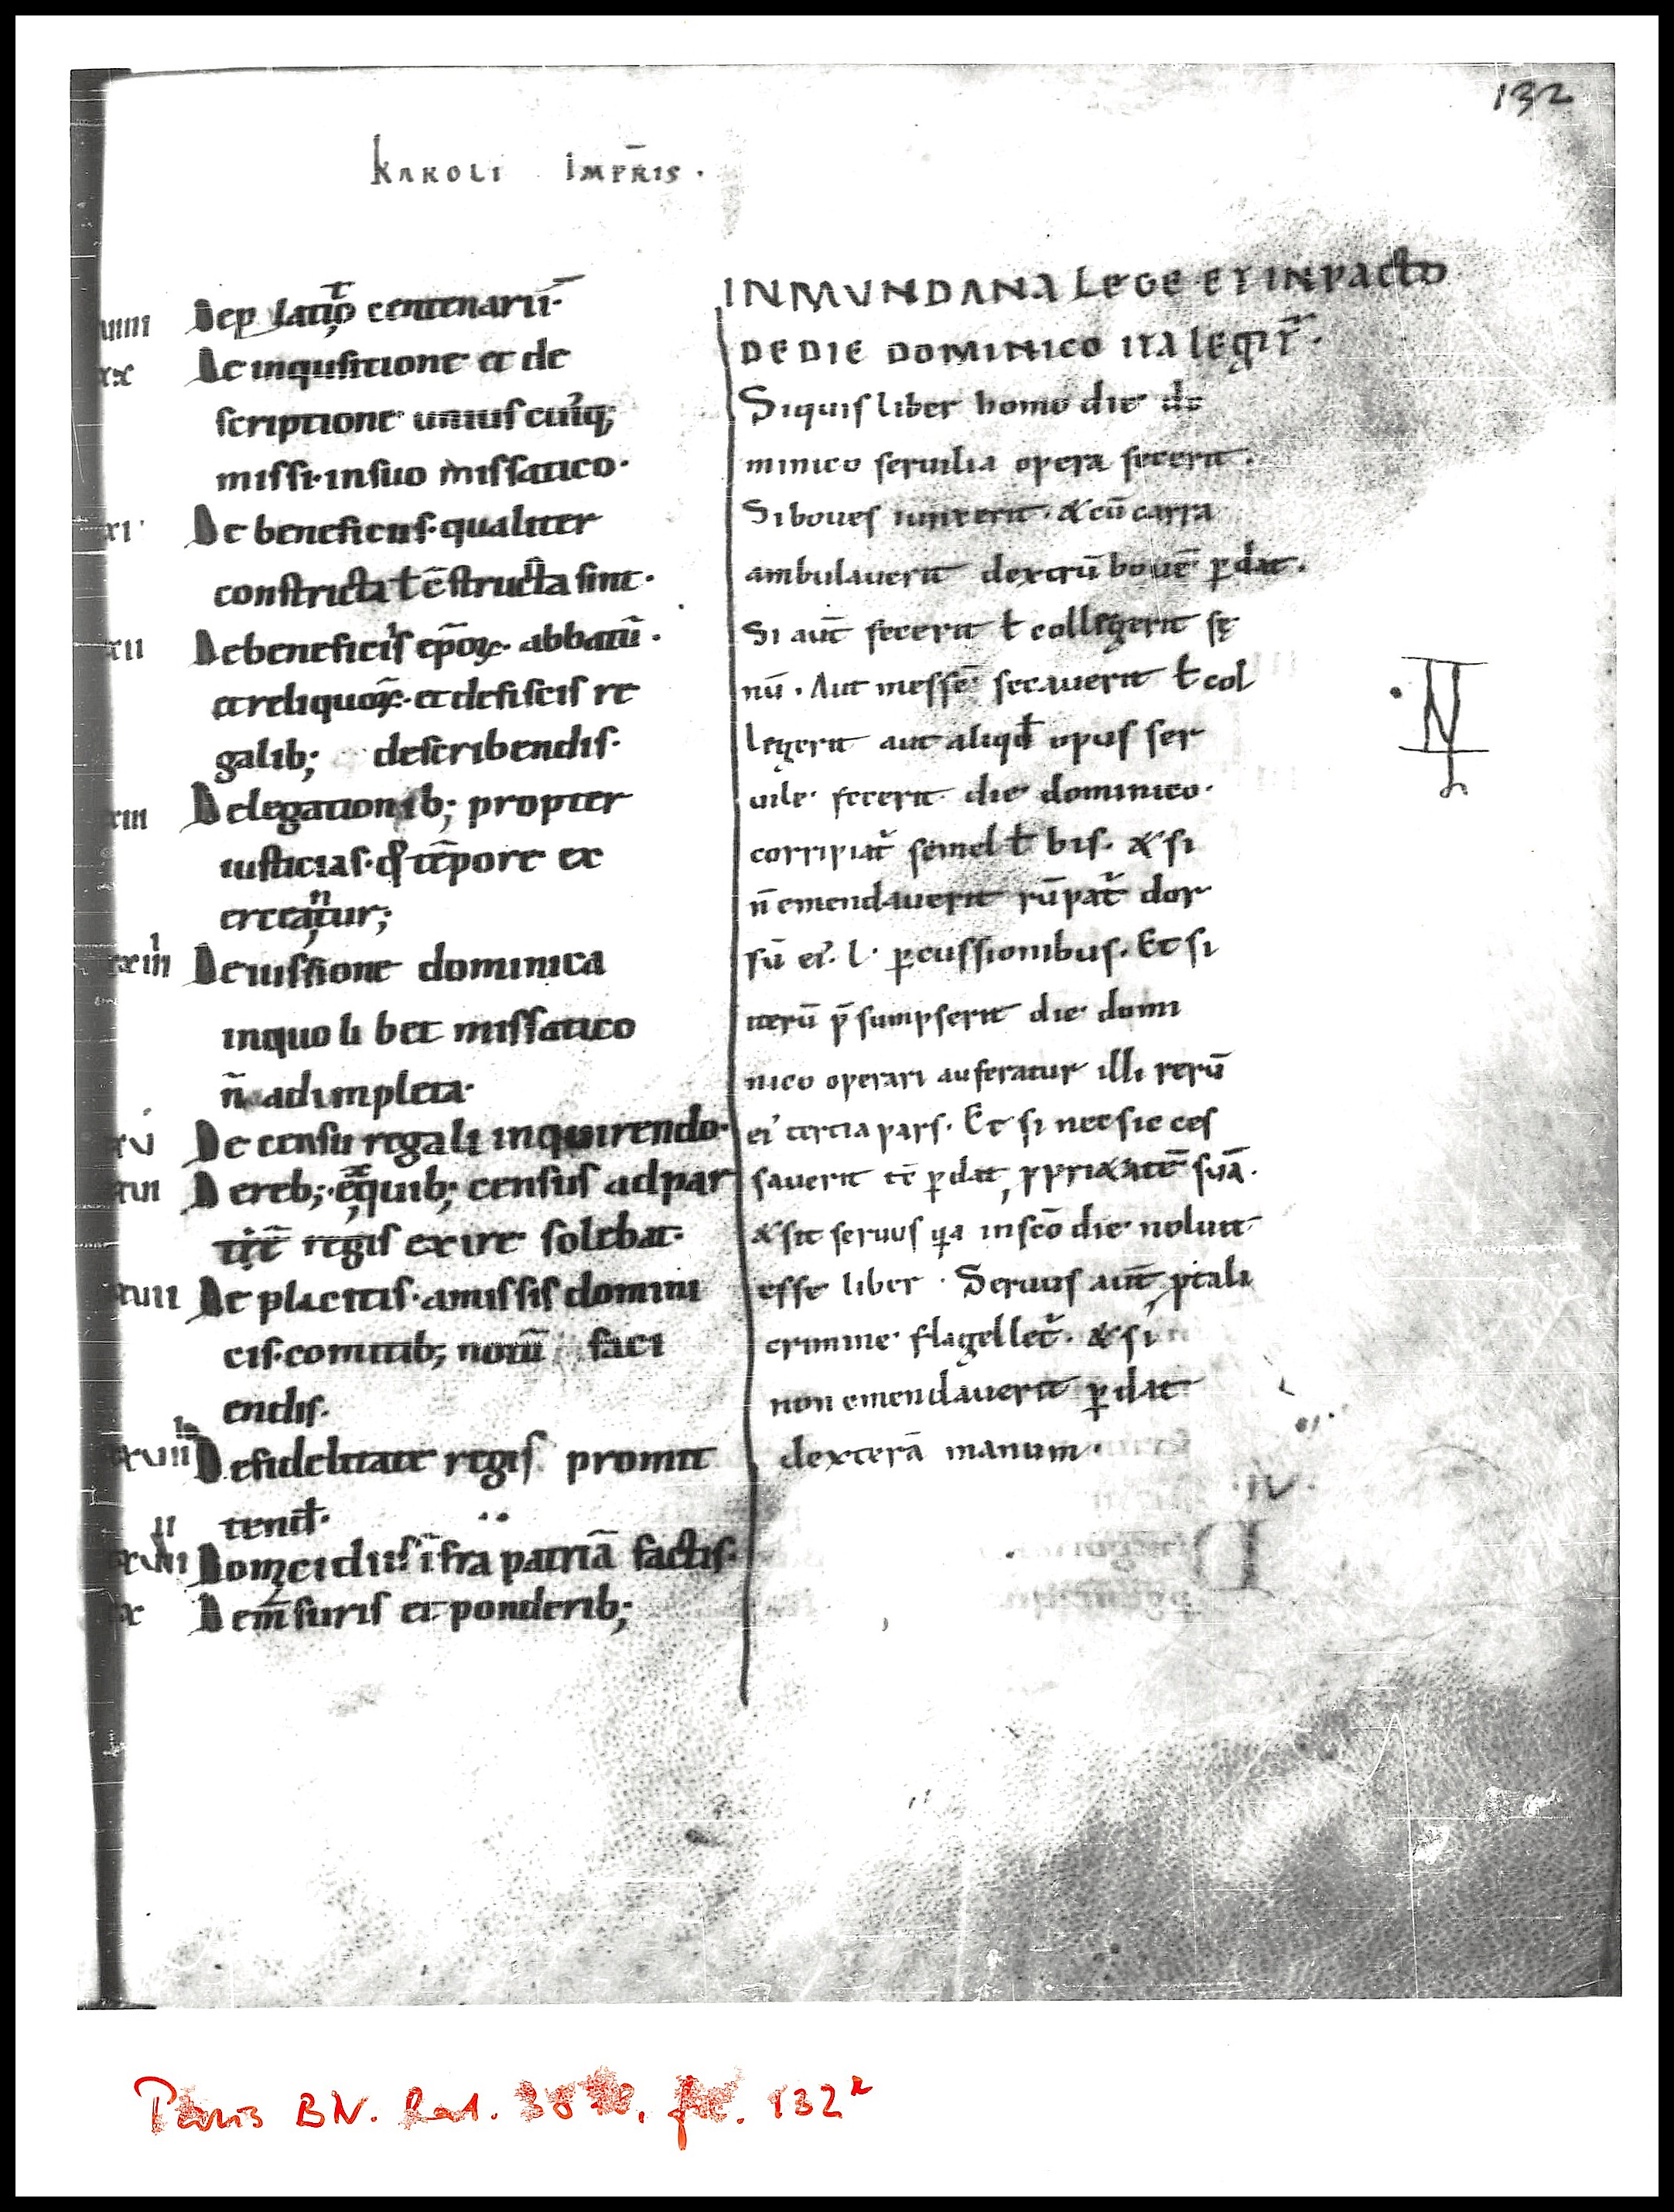 132
KAROLI IMPR̄IS.
xviiii De p latio centenarii.
xx De inquisitione et de
scriptione unius cuiq;
missi. in suo missatico.
xxi De beneficiis. qualiter
constricta ł c̄structa sint.
xxii De beneficiis ep̄oꝝ. abbatū.
et reliquoꝝ. et de fiscis re
galib; describendis.
xxiii De legationib; propter
iusticias. tēpore ex
erceantur;
xxiiii De iussione dominica
in quo li bet missatico
n̄ adimpleta.
xxv De censu regali inquirendo.
xxvi De reb; ex quib; census ad par
tē regis exire solebat.
xxvii De placitis. a missis domini
cis. comitib; notū faci
endis.
xxviii De fidelitate regis promit
tend̄.
xxviiii De omicidiis īfra patriā factis.
xxx De mēsuris et ponderib;
IN MUNDANA LEGE ET IN PACTO
DE DIE DOMINICO ITA LEGIT̄.
Si quis liber homo die do
minico seruilia opera fecerit.
Si boues iunxerit. & cū carra
ambulauerit dextrū bouē ꝑdat.
Si aut̄ fecerit ł collegerit fę
nū. Aut messē secauerit ł col
legerit aut aliqd̄ opus ser
uile fecerit die dominico.
corripiat̄ semel ł bis. & si
n̄ emendauerit rūpat̄ dor
sū ei'. l. ꝑcussionibus. Et si
iterū p̄sumpserit die domi
nico operari auferatur illi rerū
ei' tercia pars. Et si nec sic ces
sauerit tc̄ ꝑdat ꝓpriaatē suā.
& sit seruus qia in sc̄o die noluit
esse liber. Seruus aut̄ p tali
crimine flagellet̄. & si
non emendauerit ꝑdat
dexterā manum.
N
.IV.
Paris BN. Lat. 3878, fol. 132r